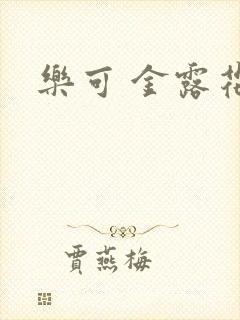 樂可 金露花
賈燕梅